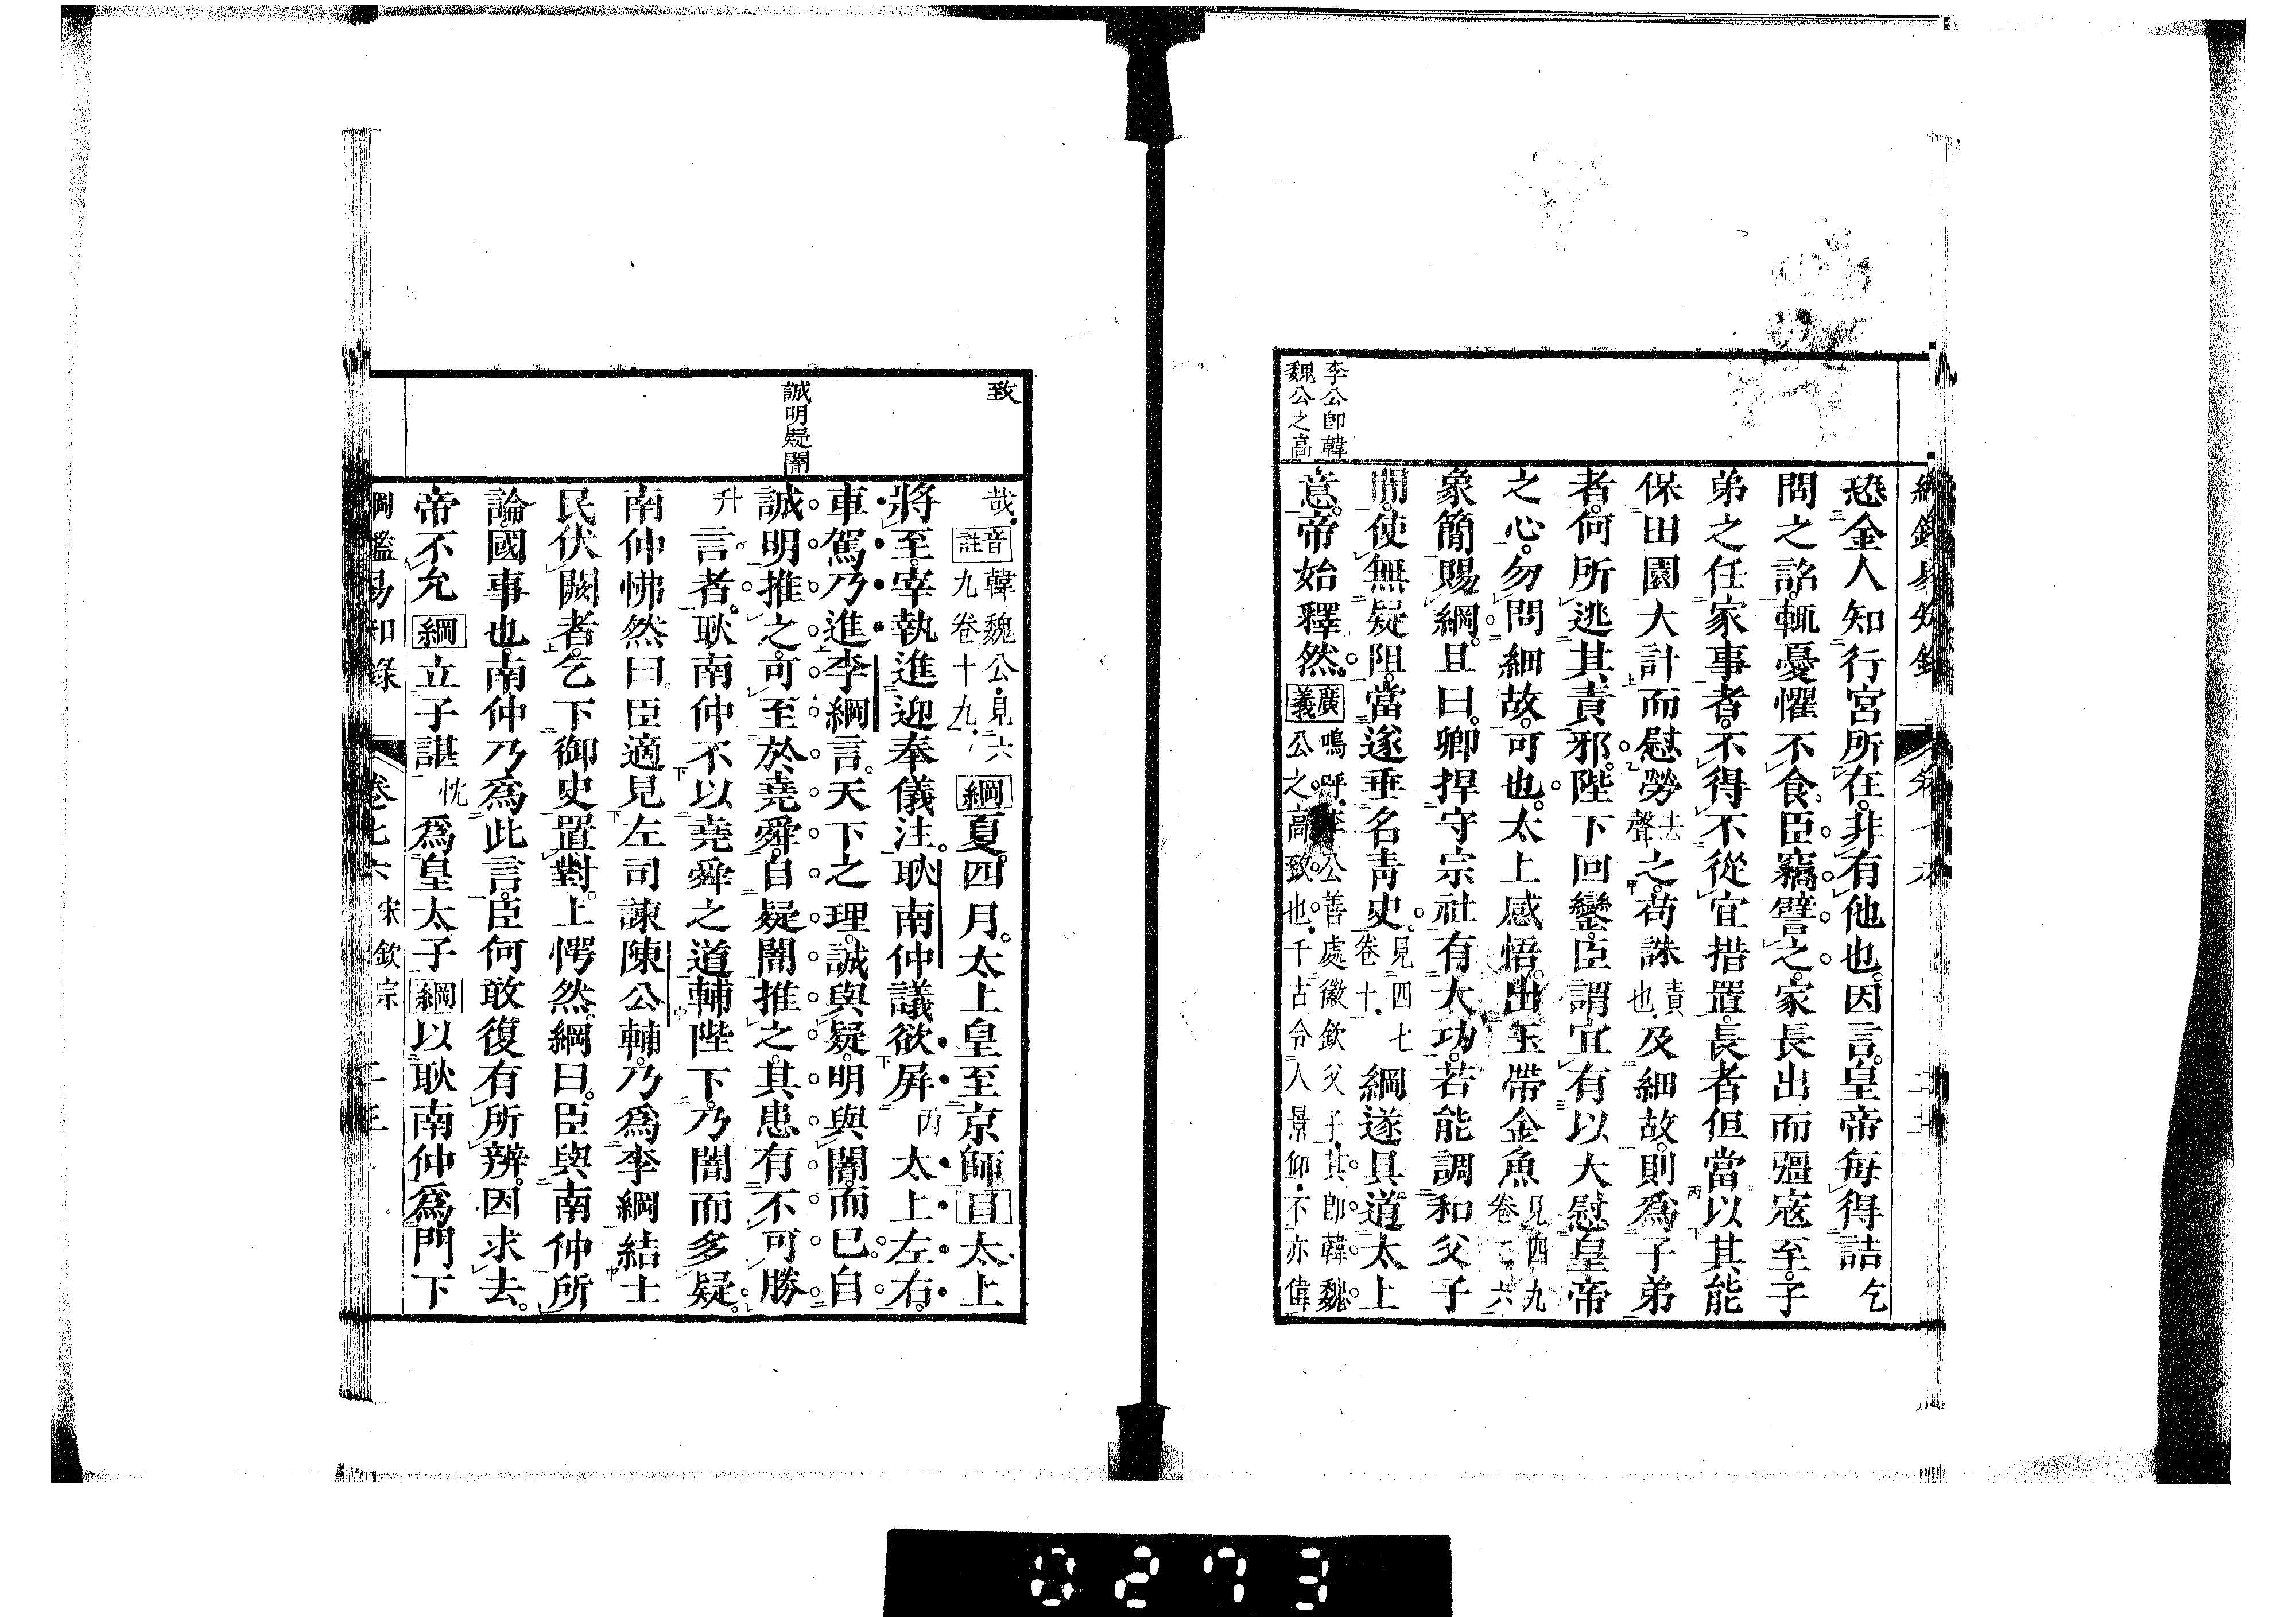 李公卽韓
魏公之高
恐金人知行宮所在非有他也因言皇帝每得詰乞
問之詔輒憂懼不食臣竊譬之家長出而彊寇至子
弟之任家事者不得不從宜措置長者但當以其能
保田園大計而慰勞去聲之苟誅責也及細故則爲子弟
者何所逃其責邪陛下回鑾臣謂宜有以大慰皇帝
之心勿問細故可也太上感悟出玉帶金魚見四九卷二六
象簡賜綱且曰卿捍守宗社有大功若能調和父子
間使無疑阻當遂垂名青史見四七卷十綱遂具道太上
意帝始釋然廣義嗚呼李公善處徽欽父子其卽韓魏
公之高致也千古令人景仰不亦偉
致
誠明疑闇
哉音註韓魏公見六九卷十九綱夏四月太上皇至京師目太上
將至宰執進迎奉儀注耿南仲議欲屏丙太上左右
車駕乃進李綱言天下之理誠與疑明與闇而已自
誠明推之可至於堯舜自疑闇推之其患有不可勝
升言者耿南仲不以堯舜之道輔陛下乃闇而多疑
南仲怫然曰臣適見左司諫陳公輔乃爲李綱結士
民伏闕者乞下御史置對上愕然綱曰臣與南仲所
論國事也南仲乃爲此言臣何敢復有所辨因求去
帝不允綱立子諶忱爲皇太子綱以耿南仲爲門下
綱鑑易知錄 卷七六 宋欽宗
0273